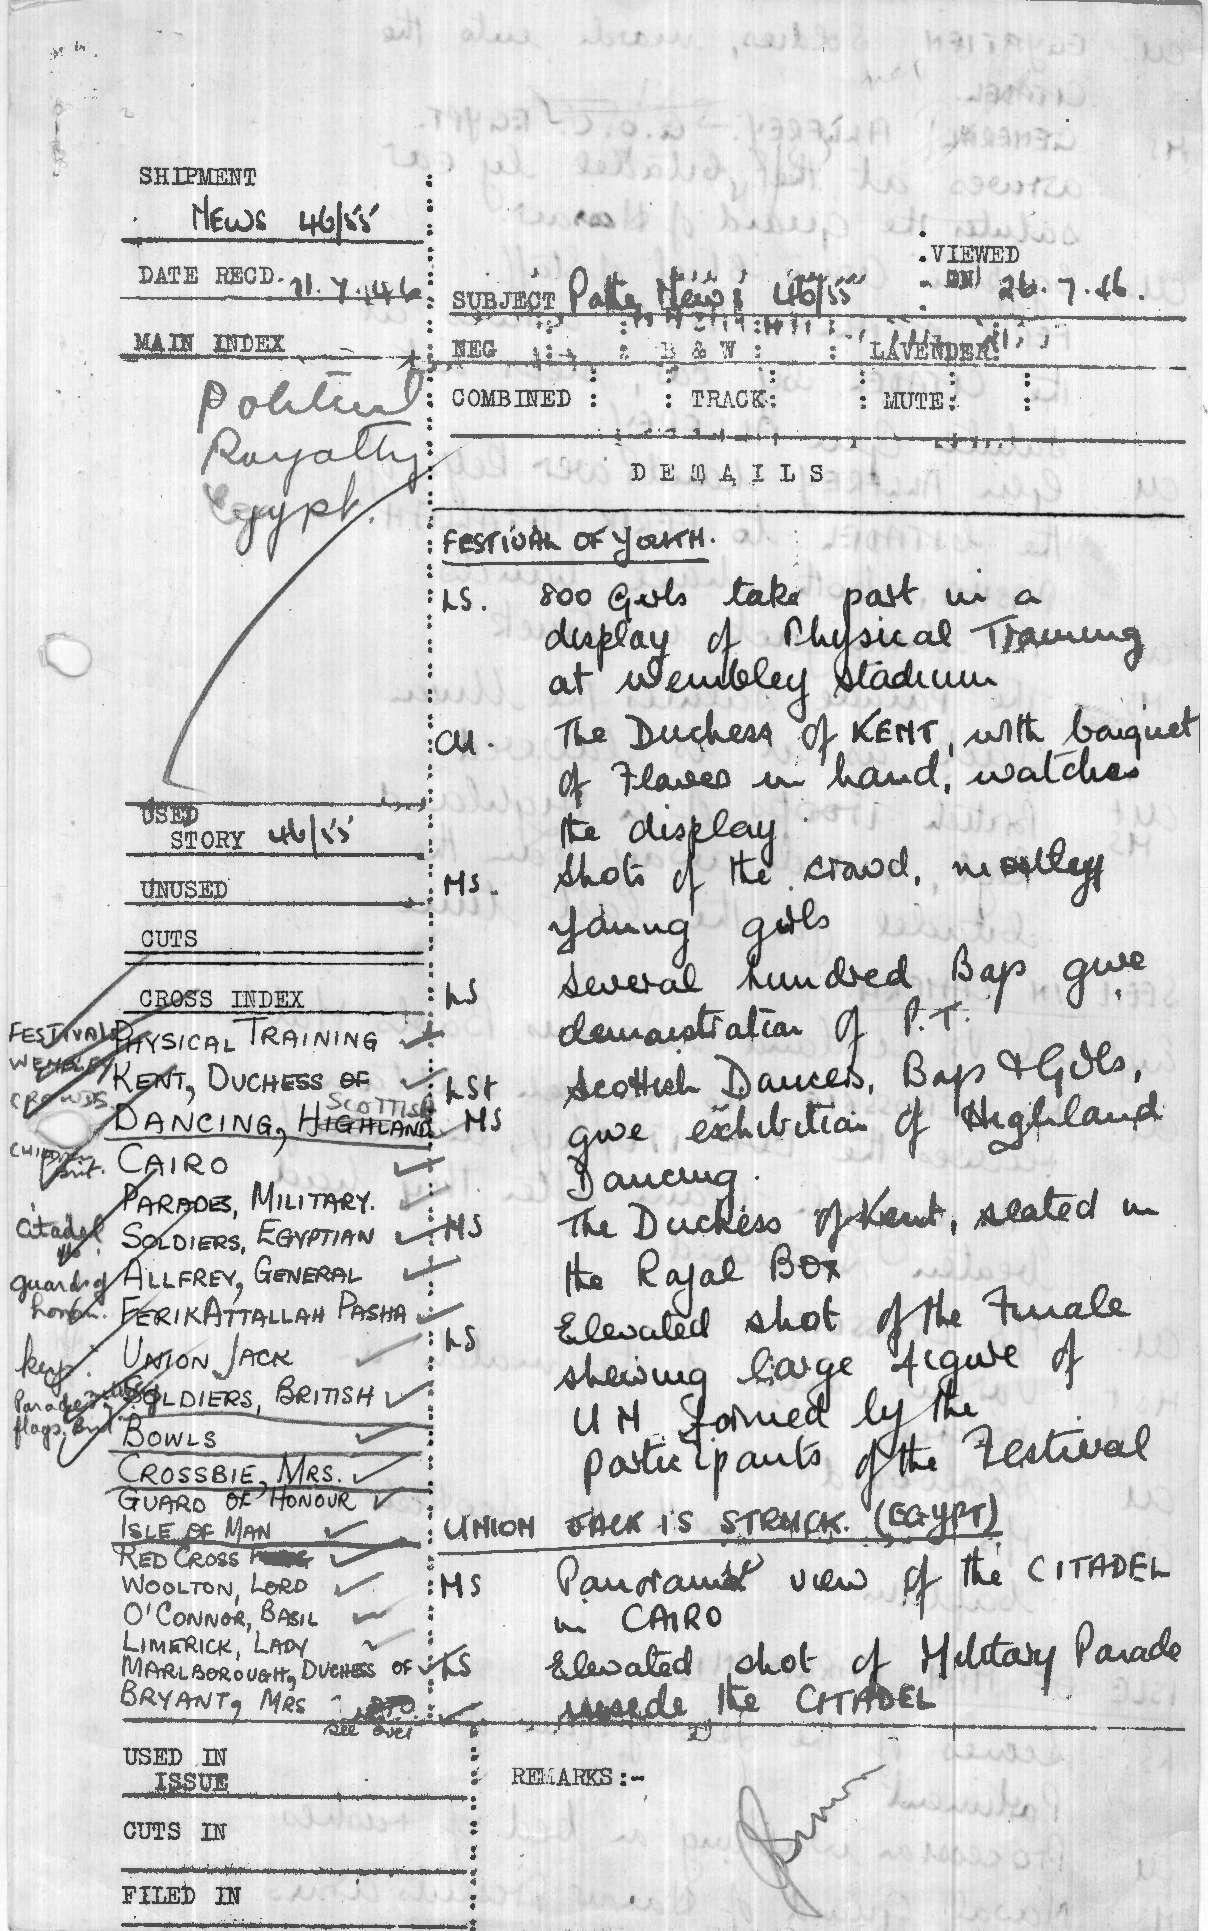 SHIPMENT
NEWS 46/55
DATE RECD. 11.7.46
MAIN INDEX
Political
Royalty
Egypt.
USED
STORY 46/55
UNUSED
CUTS
CROSS INDEX
FESTIVALS
WEMBLEY
CROWDS
CHILDREN
Brit.
Citadel
guard of
honour.
keys.
Parades
flags. Brit
PHYSICAL TRAINING
KENT, DUCHESS OF
SCOTTISH
DANCING, HIGHLAND
CAIRO
PARADES, MILITARY.
SOLDIERS, EGYPTIAN
ALLFREY, GENERAL
FERIK ATTALLAH PASHA
UNION JACK
SOLDIERS, BRITISH
BOWLS
CROSSBIE, MRS.
GUARD OF HONOUR
ISLE OF MAN
RED CROSS
WOOLTON, LORD
O'CONNOR, BASIL
LIMERICK, LADY
MARLBOROUGH, DUCHESS OF
BRYANT, MRS
PTO
see over
USED IN
ISSUE
CUTS IN
FILED IN
VIEWED
ON 26.7.46.
SUBJECT Pathe News 46/55
NEG : : B & W : : LAVENDER:
COMBINED : : TRACK: : MUTE: :
DETAILS
FESTIVAL OF YOUTH.
LS. 800 Girls take part in a
display of Physical Training
at Wembley Stadium
CU. The Duchess of KENT, with boiquet
of Flowers in hand, watches
the display
MS. Shots of the crowd, mostley
young girls
LS Several hundred Boys give
demonstration of P.T.
LS+ Scottish Dancers, Boys & Girls,
MS give exhibition of Highland
Dancing.
MS The Duchess of Kent, seated in
the Royal Box
LS Elevated shot of the Finale
shewing large figure of
UN formed by the
participants of the Festival
UNION JACK IS STRUCK. (EGYPT)
MS Panoramic view of the CITADEL
in CAIRO
LS Elevated shot of Military Parade
inside the CITADEL
REMARKS:-